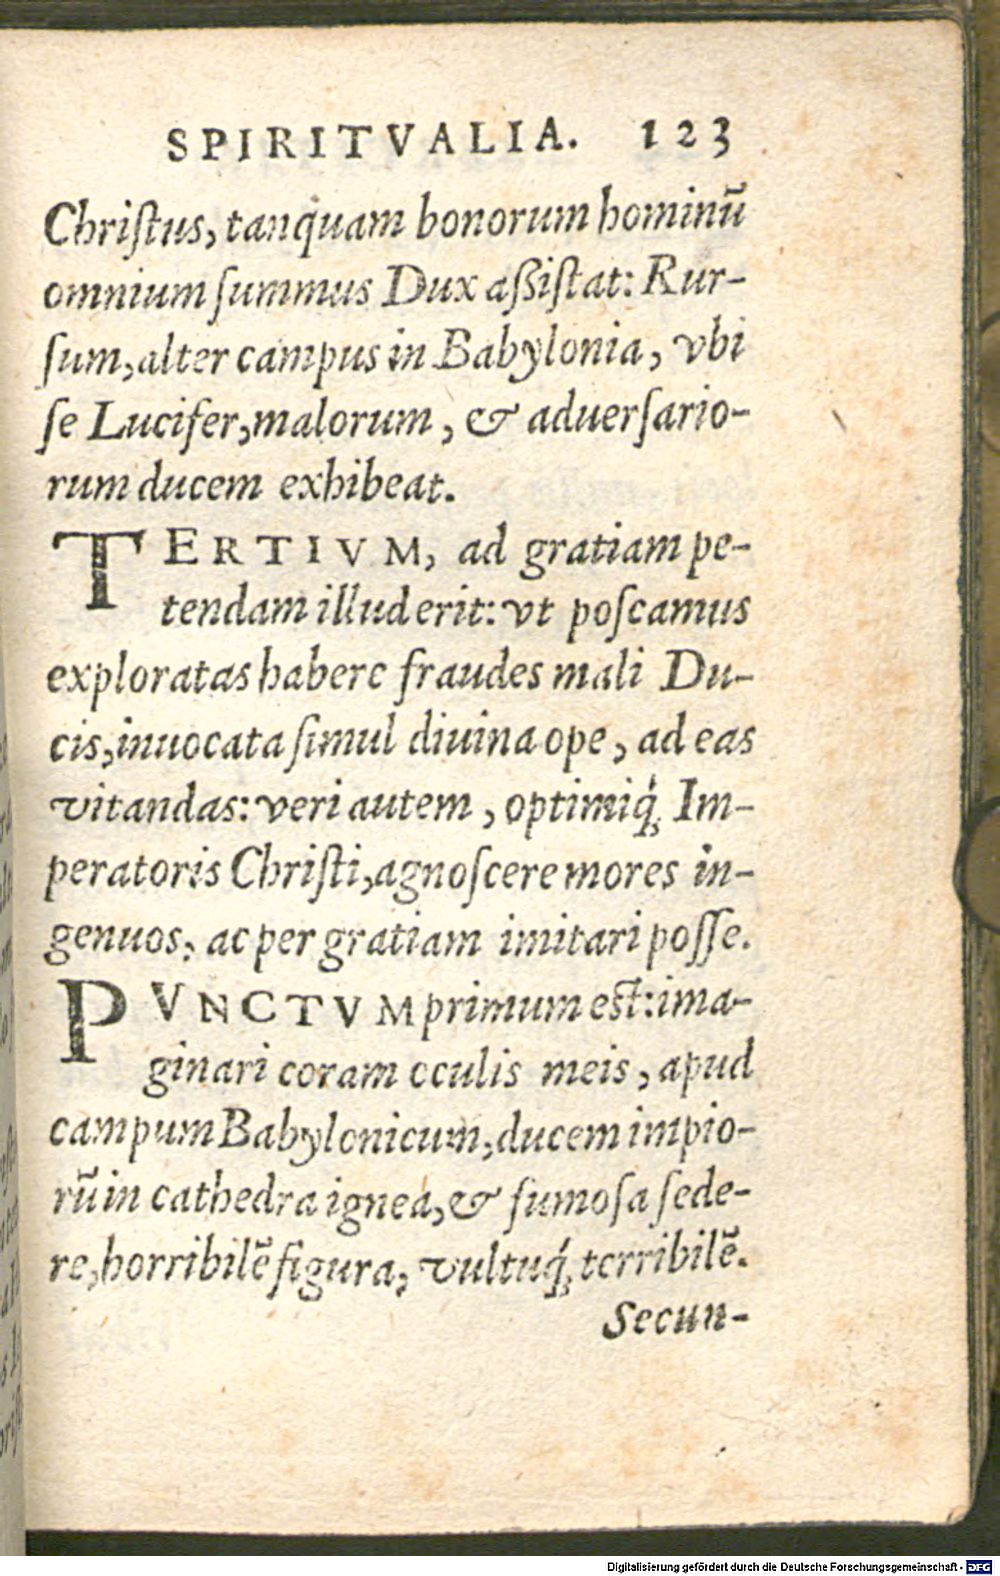 SPIRITVALIA. 123
Chriſtus, tanquam bonorum hominū
omnium ſummus Dux aſsiſtat: Rur-
ſum, alter campus in Babylonia, vbi
ſe Lucifer, malorum, & aduerſario-
rum ducem exhibeat.
TERTIVM, ad gratiam pe-
tendam illud erit: vt poſcamus
exploratas habere fraudes mali Du-
cis, inuocata ſimul diuina ope, ad eas
vitandas: veri autem, optimiq́; Im-
peratoris Chriſti, agnoſcere mores in-
genuos, ac per gratiam imitari poſſe.
PVNCTVM primum eſt: ima-
ginari coram oculis meis, apud
campum Babylonicum, ducem impio-
rū in cathedra ignea, & fumoſa ſede-
re, horribilē figura, vultuq́; terribilē.
Secun-
Digitalisierung gefördert durch die Deutsche Forschungsgemeinschaft - DFG